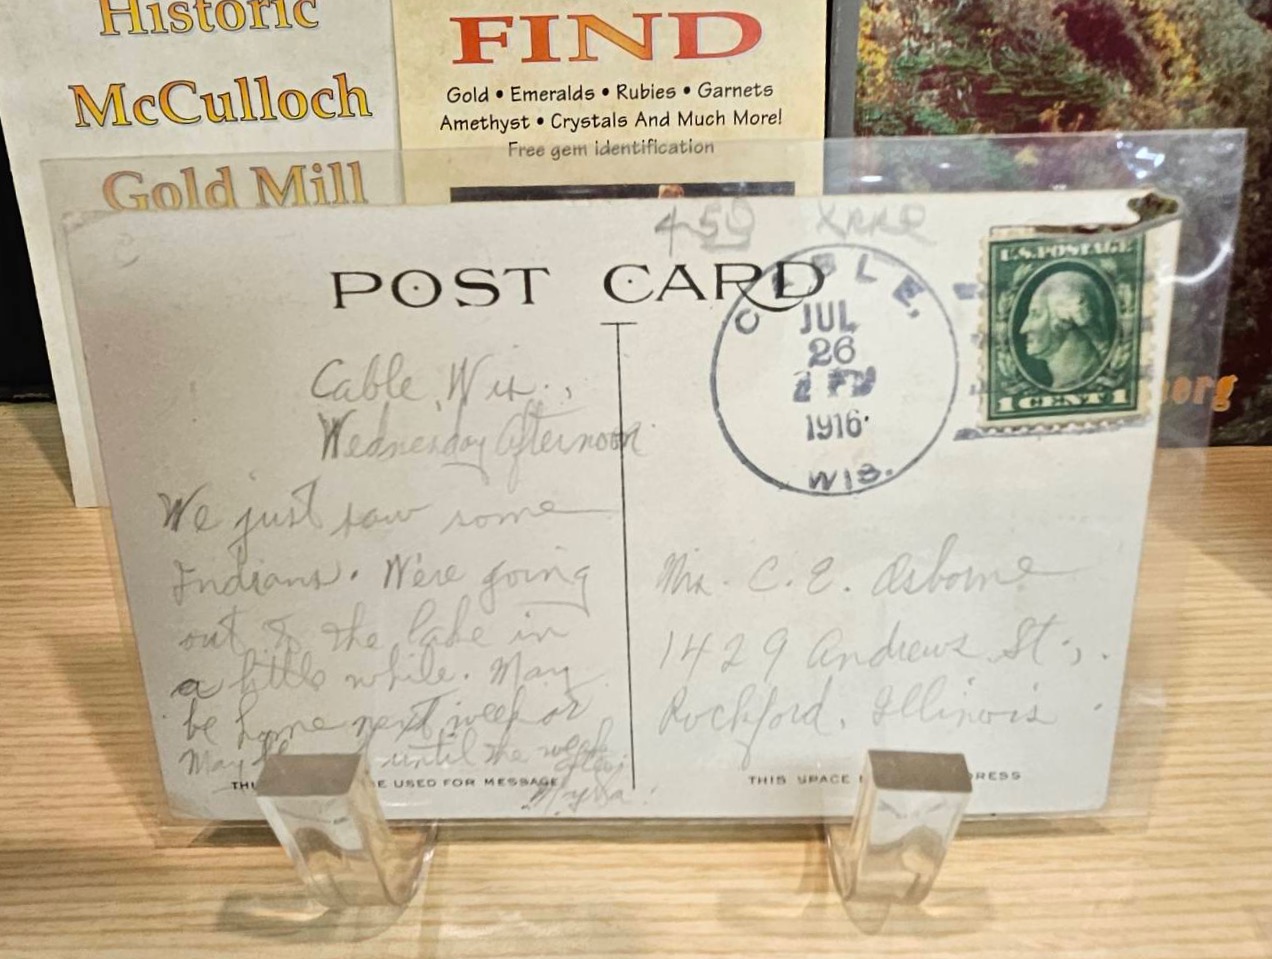 Historic
McCulloch
Gold Mill
FIND
Gold • Emeralds • Rubies • Garnets
Amethyst • Crystals And Much More!
Free gem identification
POST CARD
JUL
26
1916
WIS.
U.S. POSTAGE
1 CENT 1
Cable, Wis.,
Wednesday Afternoon
We just saw some
Indians. We're going
out to the lake in
a little while. May
be home next week or
May until the week
after.
E USED FOR MESSAGE
THIS SPACE
Mrs. C. E. Osborne
1429 Andrews St.,
Rockford, Illinois.